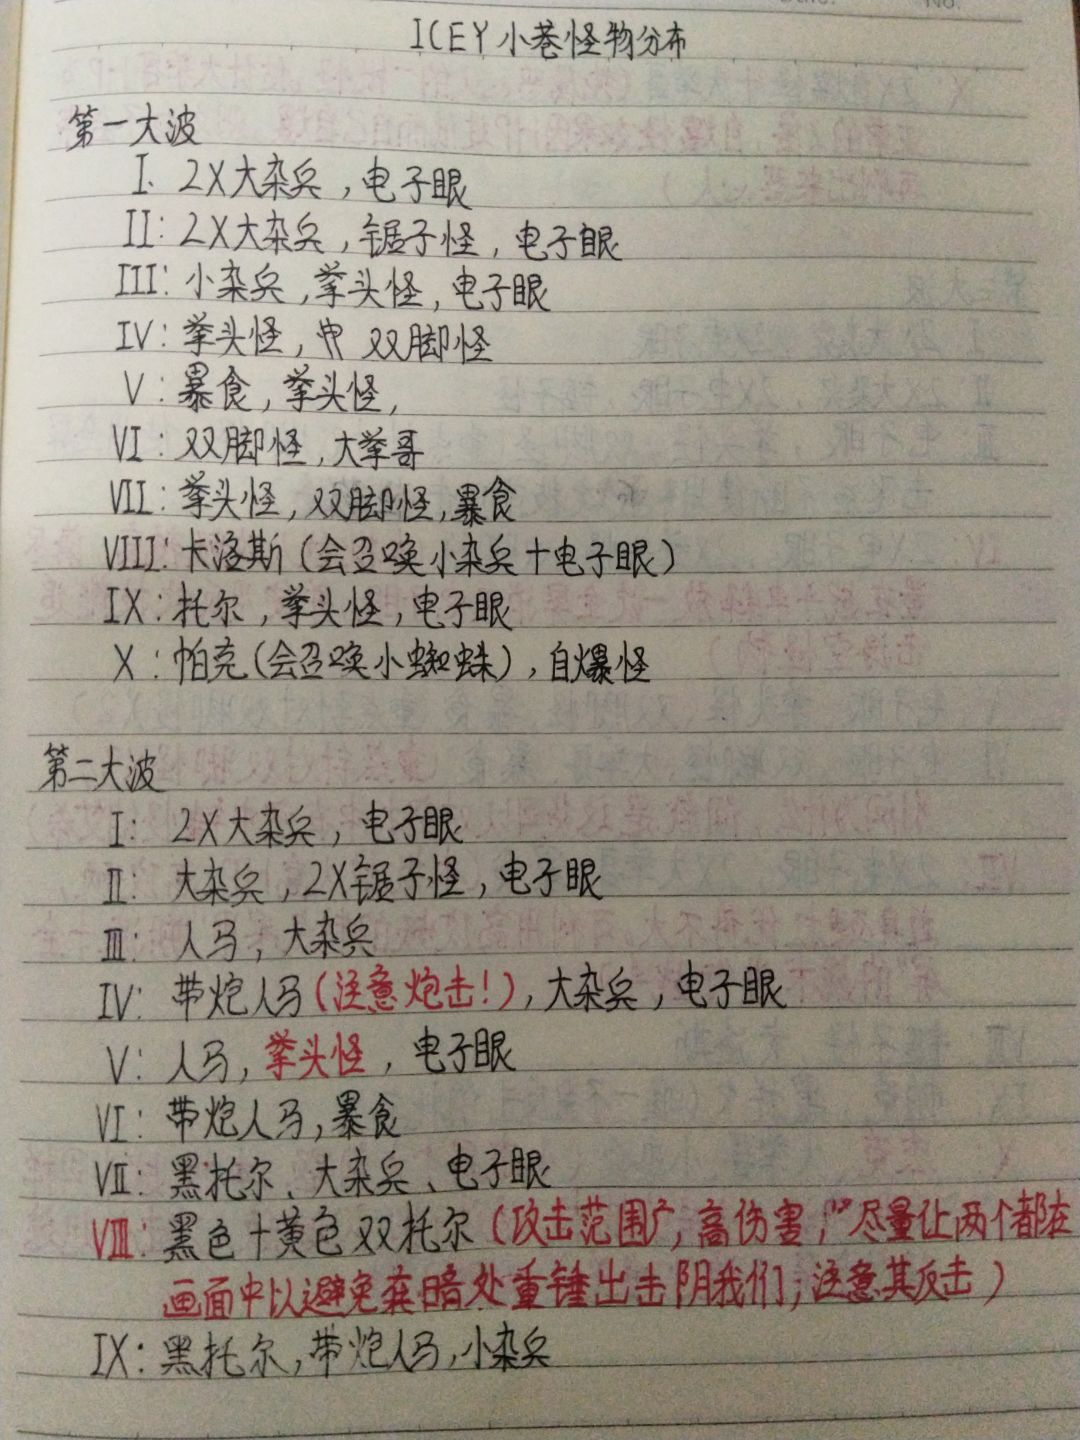 ICEY小巷怪物分布
第一大波
I. 2X大杂兵，电子眼
II: 2X大杂兵，锯子怪，电子眼
III: 小杂兵，拳头怪，电子眼
IV: 拳头怪，双脚怪
V: 暴食，拳头怪，
VI: 双脚怪，大拳哥
VII: 拳头怪，双脚怪，暴食
VIII: 卡洛斯（会召唤小杂兵+电子眼）
IX: 托尔，拳头怪，电子眼
X: 帕克（会召唤小蜘蛛），自爆怪
第二大波
I: 2X大杂兵，电子眼
II: 大杂兵，2X锯子怪，电子眼
III: 人马，大杂兵
IV: 带炮人马（注意炮击！），大杂兵，电子眼
V: 人马，拳头怪，电子眼
VI: 带炮人马，暴食
VII: 黑托尔、大杂兵、电子眼
VIII: 黑色+黄色双托尔（攻击范围广，高伤害，尽量让两个都在
画面中以避免在暗处重锤出击阴我们，注意其反击）
IX: 黑托尔，带炮人马，小杂兵